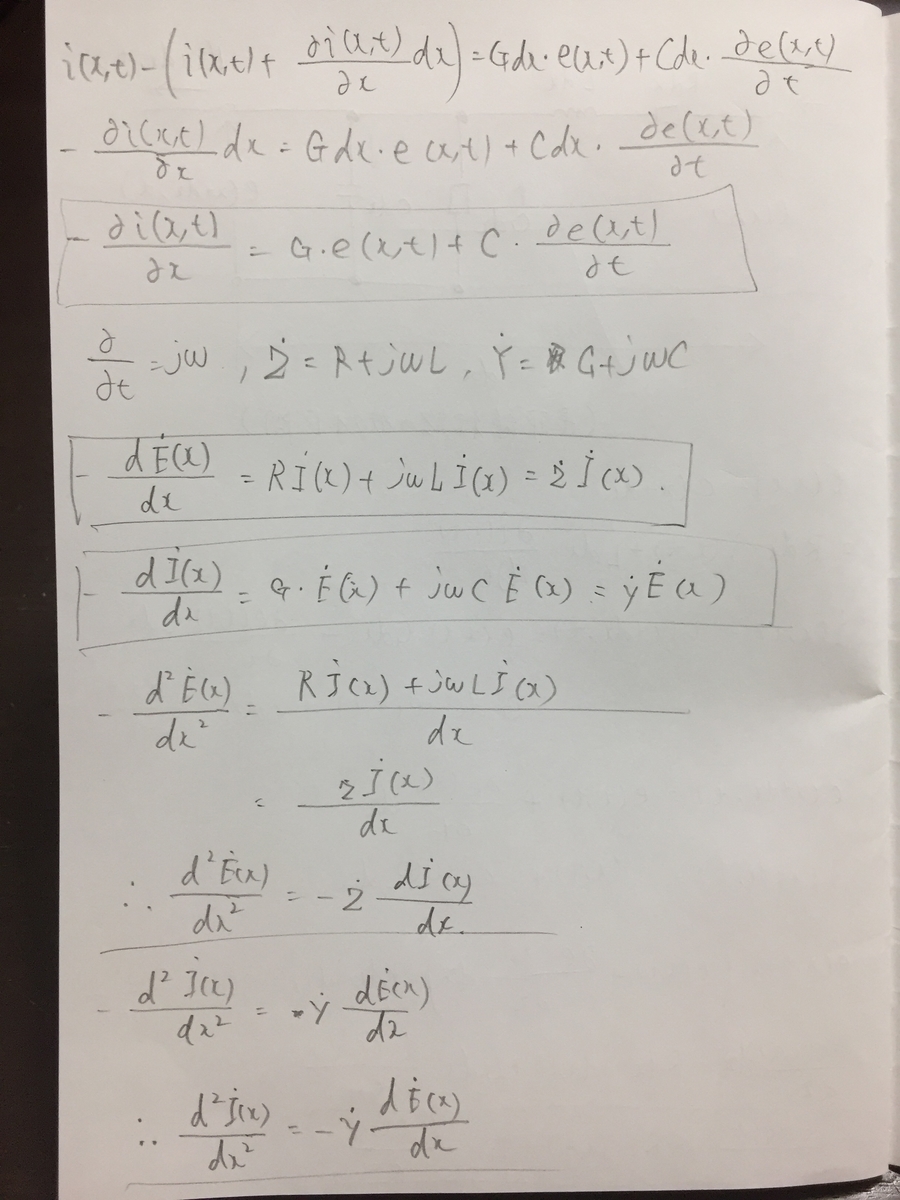 i(x,t) - (i(x,t) + ∂i(x,t)/∂x dx) = Gdx·e(x,t) + Cdx·∂e(x,t)/∂t
- ∂i(x,t)/∂x dx = Gdx·e(x,t) + Cdx·∂e(x,t)/∂t
- ∂i(x,t)/∂x = G·e(x,t) + C·∂e(x,t)/∂t
∂/∂t = jω , Ż = R+jωL , Ẏ = G+jωC
- dĖ(x)/dx = Rİ(x) + jωLİ(x) = Żİ(x).
- dİ(x)/dx = G·Ė(x) + jωCĖ(x) = ẏĖ(x)
- d²Ė(x)/dx² = Rİ(x) + jωLİ(x)/dx
= zİ(x)/dx
∴ d²Ė(x)/dx² = -Ż dİ(x)/dx.
- d²İ(x)/dx² = ·Ẏ dĖ(x)/dx
∴ d²İ(x)/dx² = -Ẏ dĖ(x)/dx